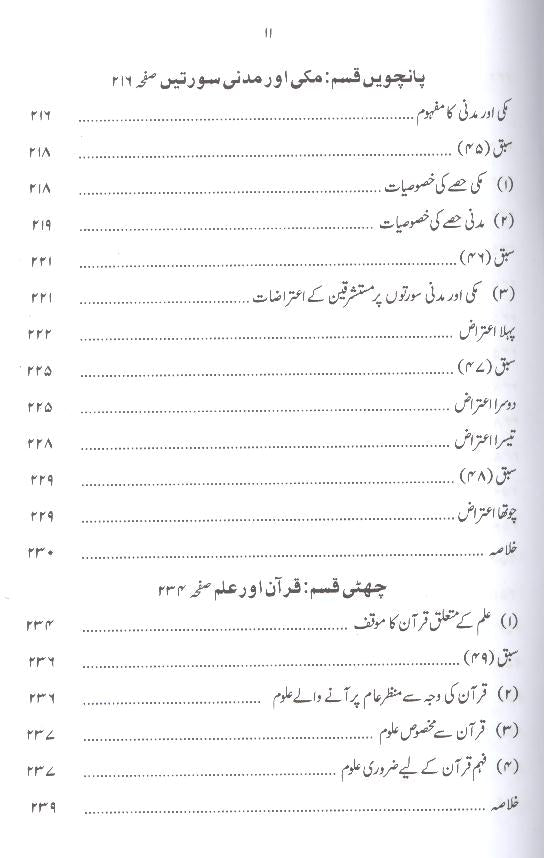 ۱۱
پانچویں قسم: مکی اور مدنی سورتیں صفحہ ۲۱۶
مکی اور مدنی کا مفہوم ........................ ۲۱۶
سبق (۴۵) ........................ ۲۱۸
(۱) مکی حصے کی خصوصیات ........................ ۲۱۸
(۲) مدنی حصے کی خصوصیات ........................ ۲۱۹
سبق (۴۶) ........................ ۲۲۱
(۳) مکی اور مدنی سورتوں پر مستشرقین کے اعتراضات ........................ ۲۲۱
پہلا اعتراض ........................ ۲۲۲
سبق (۴۷) ........................ ۲۲۵
دوسرا اعتراض ........................ ۲۲۵
تیسرا اعتراض ........................ ۲۲۸
سبق (۴۸) ........................ ۲۲۹
چوتھا اعتراض ........................ ۲۲۹
خلاصہ ........................ ۲۳۰
چھٹی قسم: قرآن اور علم صفحہ ۲۳۴
(۱) علم کے متعلق قرآن کا موقف ........................ ۲۳۴
سبق (۴۹) ........................ ۲۳۶
(۲) قرآن کی وجہ سے منظر عام پر آنے والے علوم ........................ ۲۳۶
(۳) قرآن سے مخصوص علوم ........................ ۲۳۷
(۴) فہم قرآن کے لیے ضروری علوم ........................ ۲۳۷
خلاصہ ........................ ۲۳۹